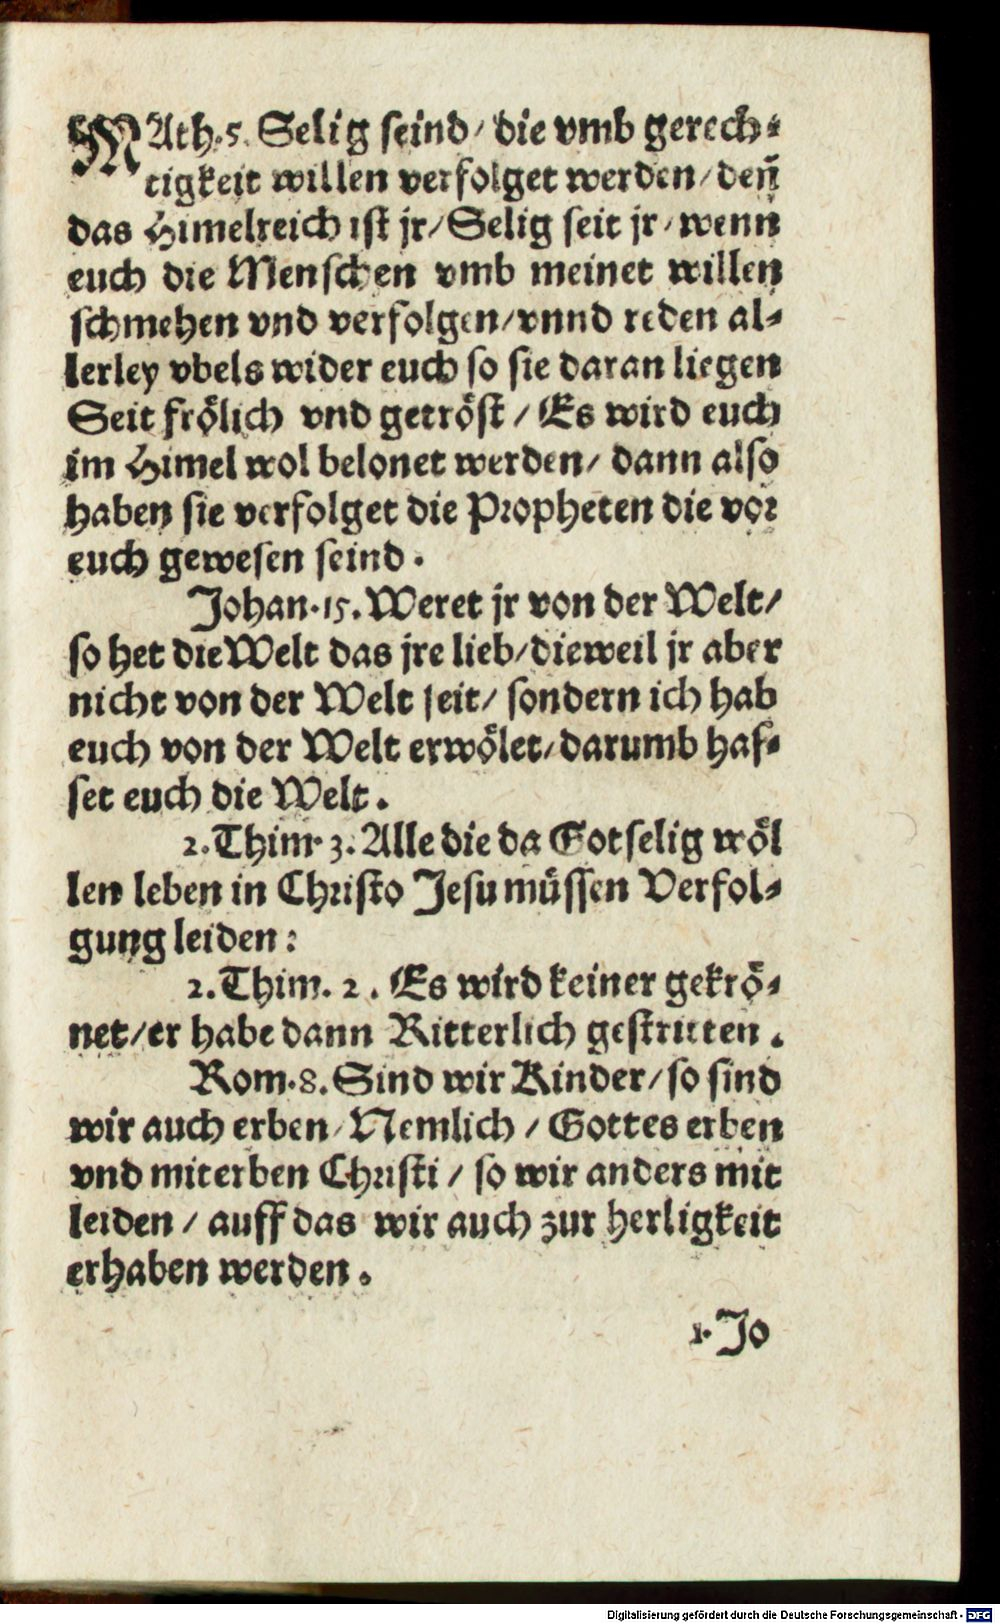 MAth. 5. Selig seind / die vmb gerech-
tigkeit willen verfolget werden / deñ
das Himelreich ist jr / Selig seit jr / wenn
euch die Menschen vmb meinet willen
schmehen vnd verfolgen / vnnd reden al-
lerley vbels wider euch so sie daran liegen
Seit frölich vnd getröst / Es wird euch
im Himel wol belonet werden / dann also
haben sie verfolget die Propheten die vor
euch gewesen seind.
Johan. 15. Weret jr von der Welt /
so het die Welt das jre lieb / dieweil jr aber
nicht von der Welt seit / sondern ich hab
euch von der Welt erwölet / darumb has-
set euch die Welt.
2. Thim. 3. Alle die da Gotselig wöl
len leben in Christo Jesu müssen Verfol-
gung leiden:
2. Thim. 2. Es wird keiner gekrö-
net / er habe dann Ritterlich gestritten.
Rom. 8. Sind wir Kinder / so sind
wir auch erben / Nemlich / Gottes erben
vnd miterben Christi / so wir anders mit
leiden / auff das wir auch zur herligkeit
erhaben werden.
1. Jo
Digitalisierung gefördert durch die Deutsche Forschungsgemeinschaft - DFG